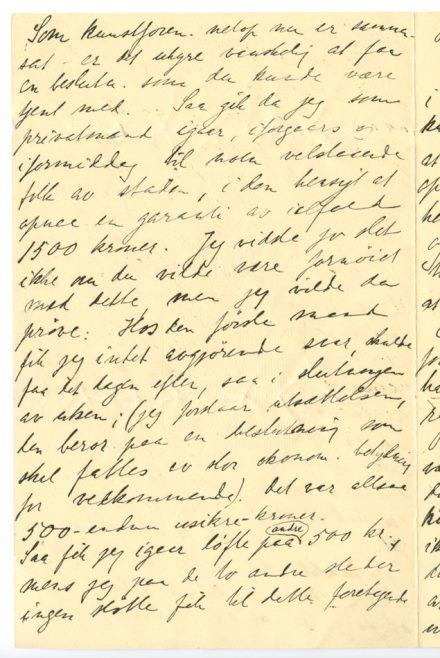 Som kunstforen. netop nu er samma-
sat - er det uhyre vanskelig at faa
en beslutn. som du kunde være
tjent med. Saa gik da jeg som
privatmand igaar, iforgaars og
iformiddag til noen velstaaende
folk av staden, i den hensigt at
opnaa en garanti av ialfald
1500 kroner. Jeg vidde jo slet
ikke om du vilde være fornøiet
med dette men jeg vilde da
prøve. Hos den første mand
fik jeg intet avgjørende svar, skulde
faa det dagen efter, saa i slutningen
av uken; (jeg forstaar utsættelsen,
den beror paa en beslutning som
skal fattes av stor økonom. betydning
for vedkommende). Det var altsaa
500 - endnu usikre - kroner.
Saa fik jeg igaar løfte paa andre 500 kr.,
mens jeg paa de to andre steder
ingen støtte fik til dette foretagende